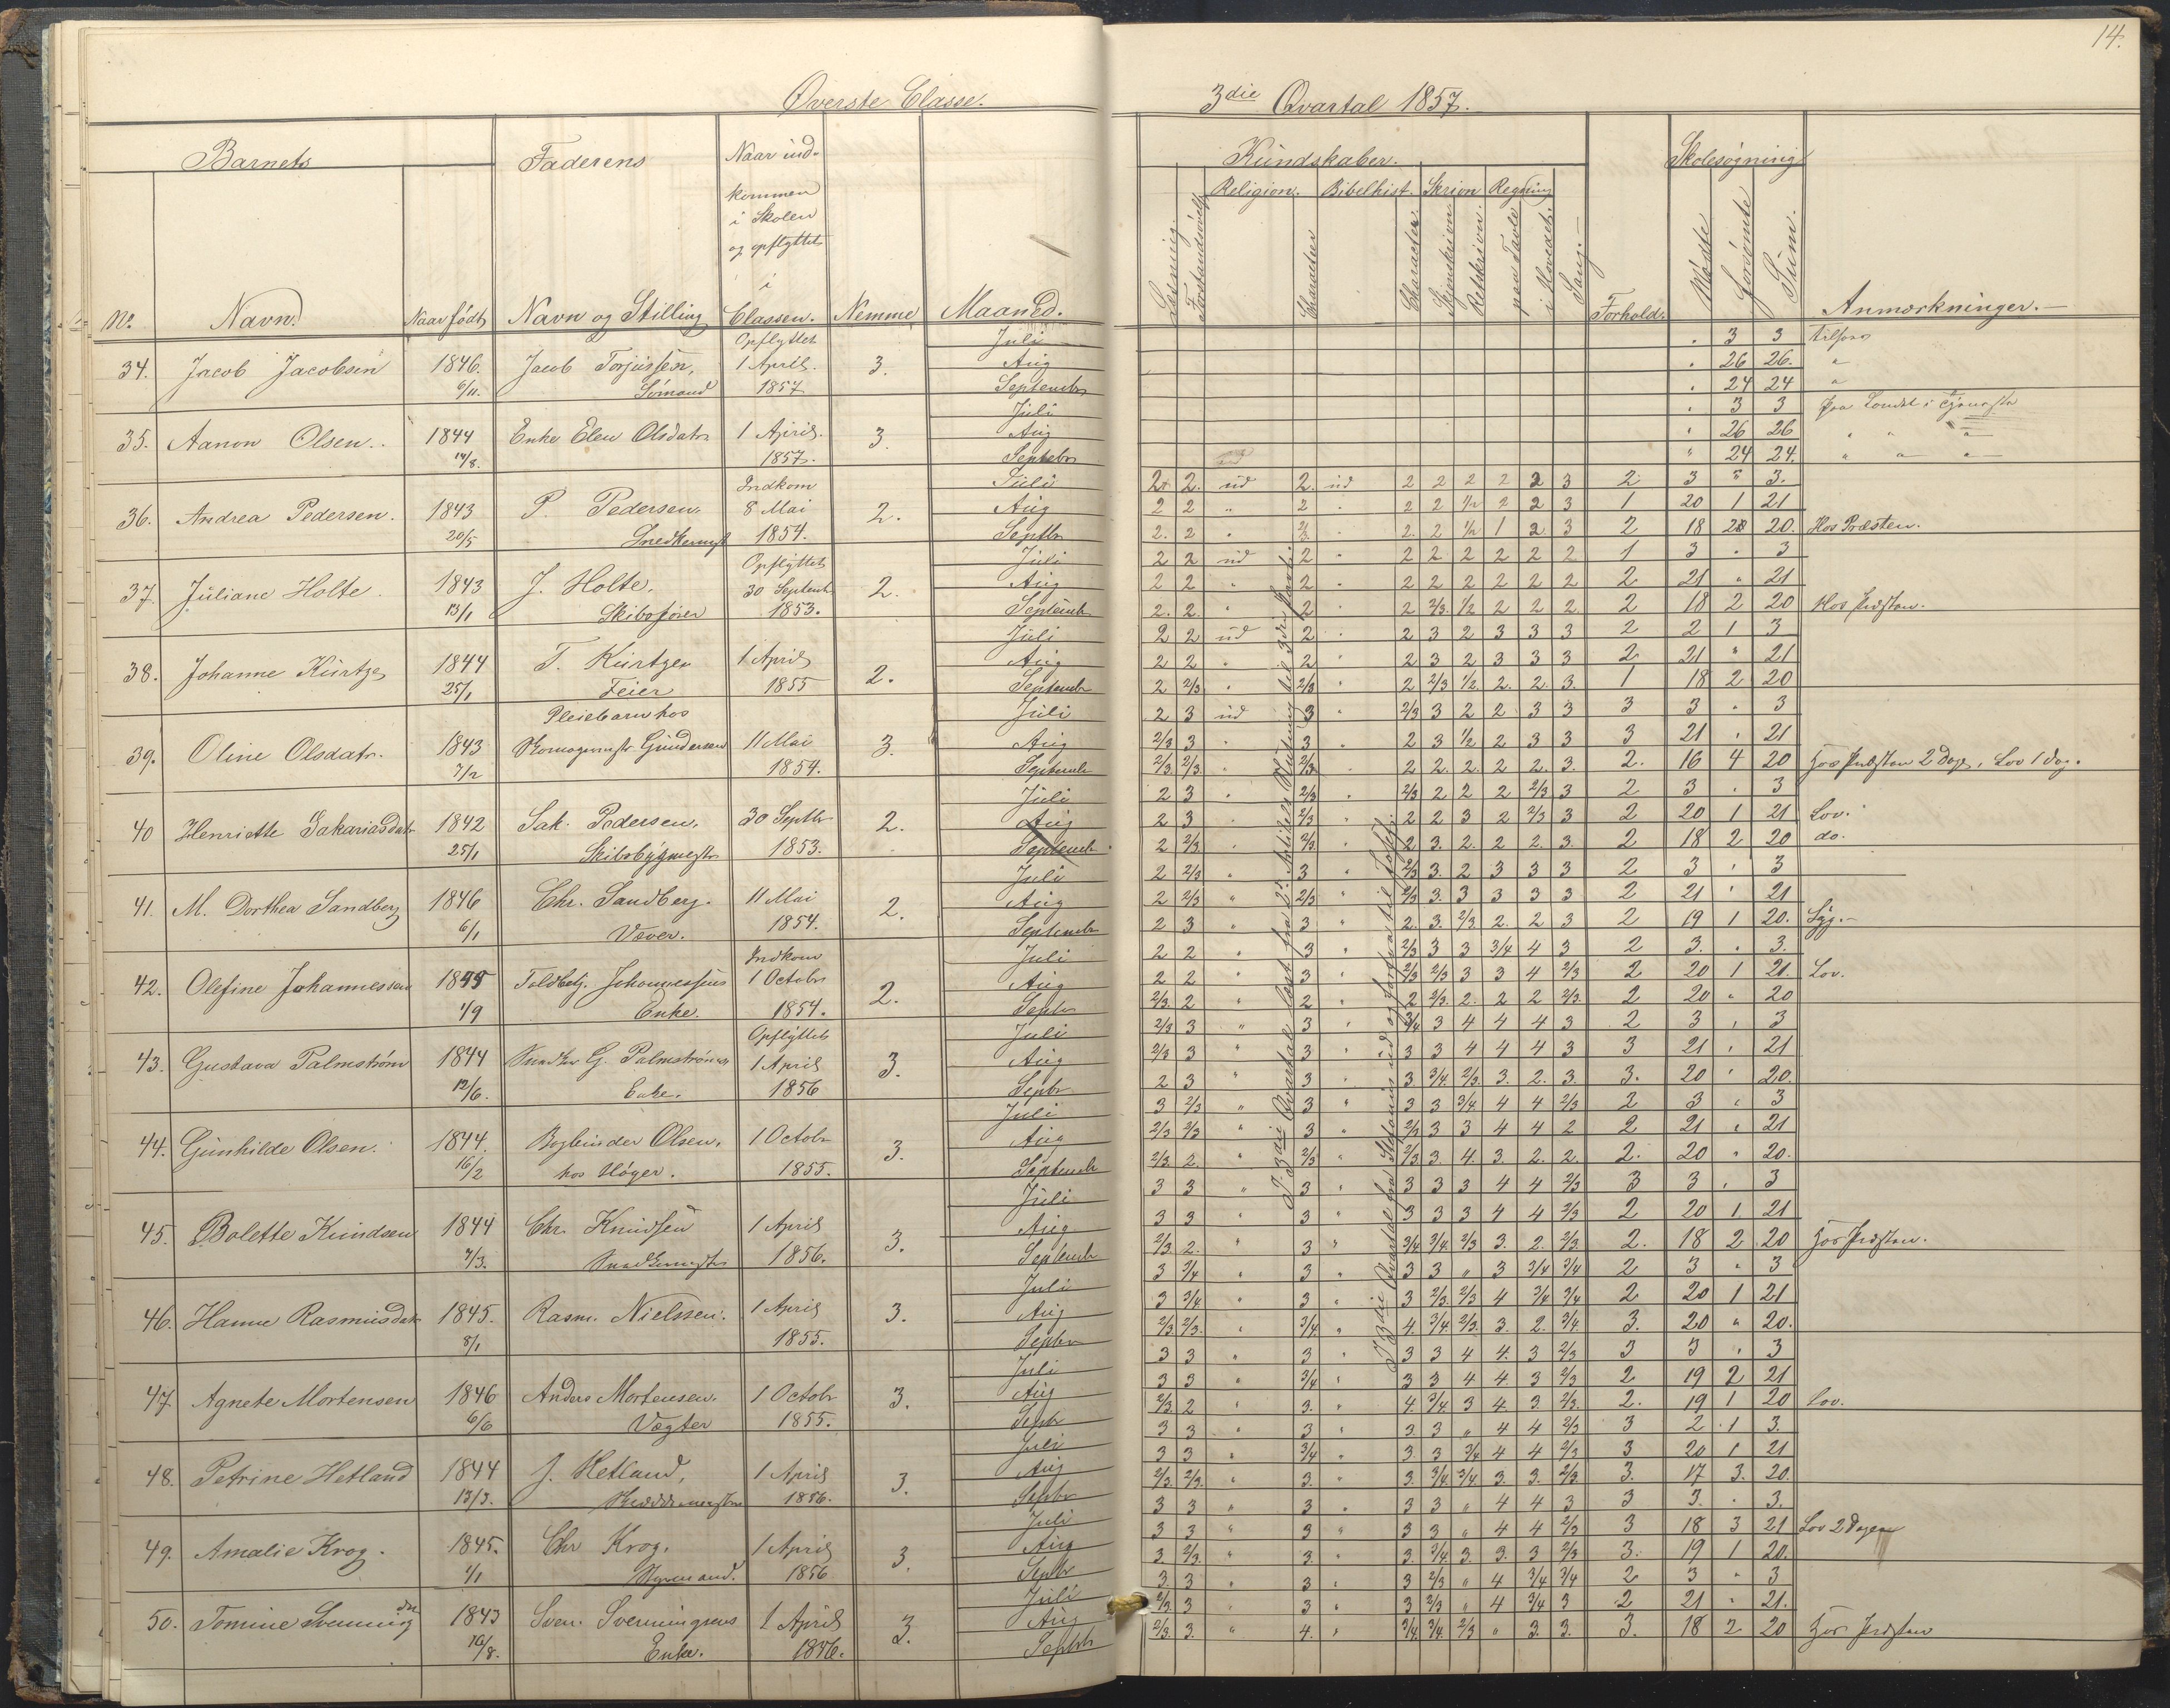 14.
Øverste Classe.
3die Qvartal 1857.
Barnets
Faderens
Naar ind-
kommen
i Skolen
og opflyttet
i
Classen.
No.
Navn.
Naar født
Navn og Stilling
Nemme
Maaned.
Kundskaber.
Religion. Bibelhist. Skrivn Regning
Læsning.
Forstandsøvelse
Character
Character
Skjønskrivn
Retskrivn.
paa Tavle
i Hovedet.
Sang.
Forhold.
Skolesøgning
Mødte
Forsømte
Sum.
Anmærkninger.
34. Jacob Jacobsen 1846. 6/11. Jacob Torjussen, Sømand Opflyttet 1 April. 1857 3.
Juli 3 3 tilsøes
Aug 26 26. "
Septembr 24 24 "
35. Aanon Olsen. 1844 14/8. Enke Elen Olsdatr 1 April. 1857. 3.
Juli 3 3 paa Landet i Tjeneste
Aug 26 26 " " "
Septebr 24 24. " " "
36. Andrea Pedersen. 1843 20/5 P. Pedersen. Snedkermst Indkom 8 Mai 1854. 2.
Juli 2 2. ud 2. ud 2 2 2 2 2 3 2. 3 " 3.
Aug 2 2 " 2 " 2 2 1/2 2 2 3 1 20 1 21
Septbr 2. 2 " 2/3 " 2. 2 1/2 1 2 3 2 18 2 20. Hos Præsten.
37. Juliane Holte. 1843 13/1 J. Holte. Skibsfører Opflyttet 30 Septemb 1853. 2.
Juli 2 2 ud 2 " 2 2 2 2 2 2 1 3 " 3
Aug 2 2 " 2 " 2 2 2 2 2 2 2 21 " 21
Septemb 2. 2 " 2 " 2 2/3. 1/2 2 2 2 2 18 2 20 Hos Præsten.
38. Johanne Kürtze 1844 25/1 T. Kürtzer Feier 1 April 1855 2.
Juli 2 2 ud 2 " 2 3 2 3 3 3 2 2 1 3
Aug 2 2 " 2 " 2 3 2 3 3 3 2 21 " 21
Septembr 2 2/3 " 2/3 " 2 2/3 1/2. 2. 2. 3. 1 18 2 20
39. Oline Olsdatr. 1843 7/2 Pleiebarn hos Skomagermstr Gundersen 11 Mai 1854. 3.
Juli 2 3 ud 3 " 2/3 3 2 2 3 3 3 3 " 3
Aug 2/3 3 " 3 " 2 3 1/2 2 3 3 3 21 " 21
Septemb 2/3. 2/3. " 2/3. " 2 2. 2. 2 2. 3. 2. 16 4 20 Hos Præsten 2 Dage, Lov 1 Dag.
40 Henriette Sakariasdatr 1842 25/1 Sak. Pedersen. Skibsbygmestr 30 Septbr 1853. 2.
Juli 2 3 " 2/3 " 2/3 2 2 2 2/3 3 2 3 " 3
Aug 2 3 " 2/3 " 2 2 3 2 2/3 3 2 20 1 21 Lov.
Septemb 2 2/3. " 2/3 " 2 3. 2. 2 2. 3. 2 18 2 20 do.
41. M. Dorthea Sandberg 1846 6/1 Chr. Sandberg. Væver. 11 Mai 1854. 2.
Juli 2 2/3 " 3 " 2/3 3. 2 3 3 3 2 3 " 3
Aug 2 2/3 " 2/3 " 2/3 3. 3 3 3 3 2 21 " 21
Septembr 2 3 " 3 " 2. 3. 2/3. 2. 2 3 2 19 1 20. Syg.
42. Olefine Johannessen 1845 1/9 Toldbetj. Johannessens Enke. Indkom 1 Octobr 1854. 2.
Juli 2 2 " 3 " 2/3 3 3 3/4 4 3 2 3. " 3.
Aug 2 2 " 3 " 2/3 2/3 3 3 4 2/3 2 20 1 21. Lov.
Septr 2/3. 2 " 2 " 2 2/3. 2. 2 2 2/3. 2 20 " 20
43. Gustava Palmstrøm 1844 12/6. Snedker G. Palmstrøms Enke. Opflyttet 1 April 1856 3.
Juli 2/3 3 " 3 " 3/4 3 4 4 4 3 2 3 " 3
Aug 2/3 3 " 3 " 3 3 4 4 4 3 3 21 " 21
Septr 2 3 " 3 " 3 3/4 2/3. 3. 2. 3. 3. 20 " 20.
44. Gunhilde Olsen. 1844. 16/2 Bogbinder Olsen. hos Høyer. 1 Octobr 1855. 3.
Juli 3 2/3 " 3 " 3 3 3/4 4 4 2/3 2 3 " 3
Aug 2/3 2/3 " 3 " 2/3 3 3 4 4 2 2 21 " 21
Septemb 2/3. 2. " 2/3 " 2/3 3. 4. 3. 2. 2. 2. 20 " 20.
45. Bolette Knudsen 1844 7/3. Chr. Knudsen Snedkermstr 1 April 1856. 3.
Juli 3 3 " 3 " 3 3 3 4 4 2/3 3 3 " 3
Aug 3 3 " 3 " 3 3 3 4 4 2/3 2 20 1 21
Septemb 2/3 2. " 3 " 3/4 3/4. 2/3 3. 2. 2/3. 2. 18 2 20 Hos Præsten.
46. Hanne Rasmusdatr 1845. 8/1 Rasm. Nielssen. 1 April 1855. 3.
Juli 3 3/4 " 3 " 3 3 " 3 3/4 3/4 2 3 " 3
Aug 3 3/4. " 3 " 3 2/3. 2/3 4 3/4 3/4 2 20 1 21
Septbr 2/3. 2/3. " 3/4. " 4. 3/4. 2/3. 3. 2. 3/4. 3. 20 " 20.
47. Agnete Mortensen 1846 6/6 Anders Mortensen. Vægter 1 Octobr 1855. 3.
Juli 3 3 " 3 " 3 3 4 4. 3 2/3 3 3 " 3
Aug 3 3 " 3/4 " 3 3 4 4. 3 2/3 2 19 2 21
Septr 2/3. 2 " 3. " 4. 3/4. 3 4. 3. 2/3. 2. 19 1 20 Lov.
48. Petrine Hetland 1844 13/3. J. Hetland, 1 April 1856. 3.
Juli 3 3 " 3 " 3 3 " 4 4 2/3 3 2 1 3.
Aug 3 3 " 3/4 " 3. 3 3/4 4 4 2/3 3 20 1 21
Septbr 2/3. 2/3. " 3. " 3. 3/4. 3/4. 3. 3. 2/3. 3. 17 3. 20.
49. Amalie Krog. 1845. 1/1 Chr Krog. Styrmand. 1 April 1856 3.
Juli 3 3 " 3 " 3 3 " 4 4 3 3 3. " 3.
Aug 3 3 " 3 " 3 3 " 4 4 2/3 3 18 3 21 Lov 2 Dage
Septbr 3. 2/3. " 3. " 3. 3/4. 3. 3. 3 2/3 3. 19 1 20.
50. Tomine Svenningdtr 1843 16/8. Sven. Svenningsens Enke. 1 April 1856. 3.
Juli 3. 3 " 3 " 3 2/3 " 4 3/4 3/4 2 3 " 3
Aug 2/3. 3 " 3 " 3 2/3 " 4 3/4 3 2 21 " 21.
Septbr 2/3. 3. " 4. " 3/4. 3/4. 2/3 " 3. 3. 3. 18 2 20 Hos Præsten
I 3die Qvartal læst fra 2den Artikels Slutning til 3die Parti
I 3die Qvartal fra Skolens ud og forfra til Josef.